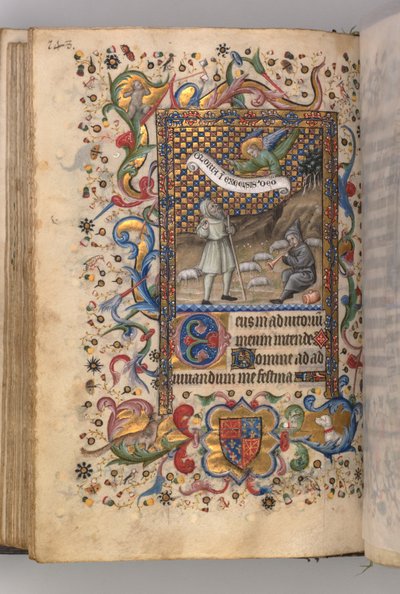 GLORIA I EXCELSIS DEO
Deus in adiutoriū
meum intende
Domine ad ad
iuuandum me festina